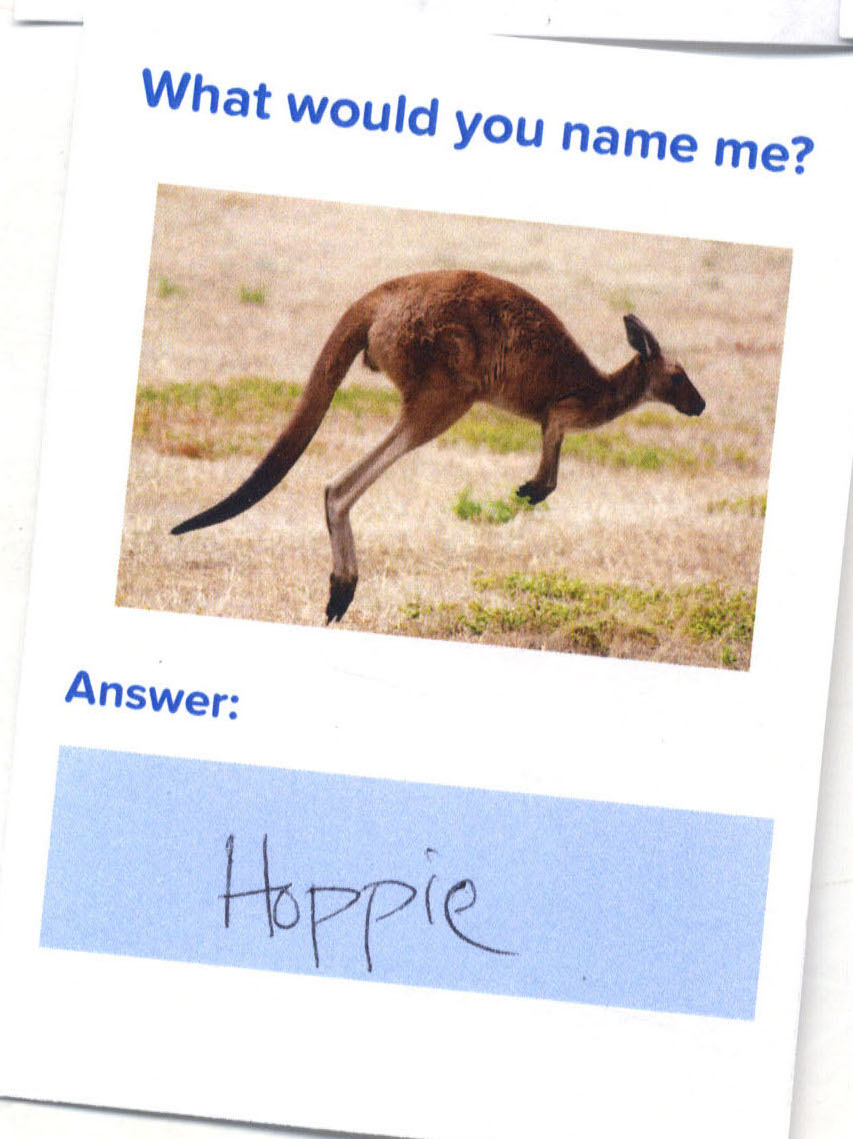 What would you name me?
Answer:
Hoppie